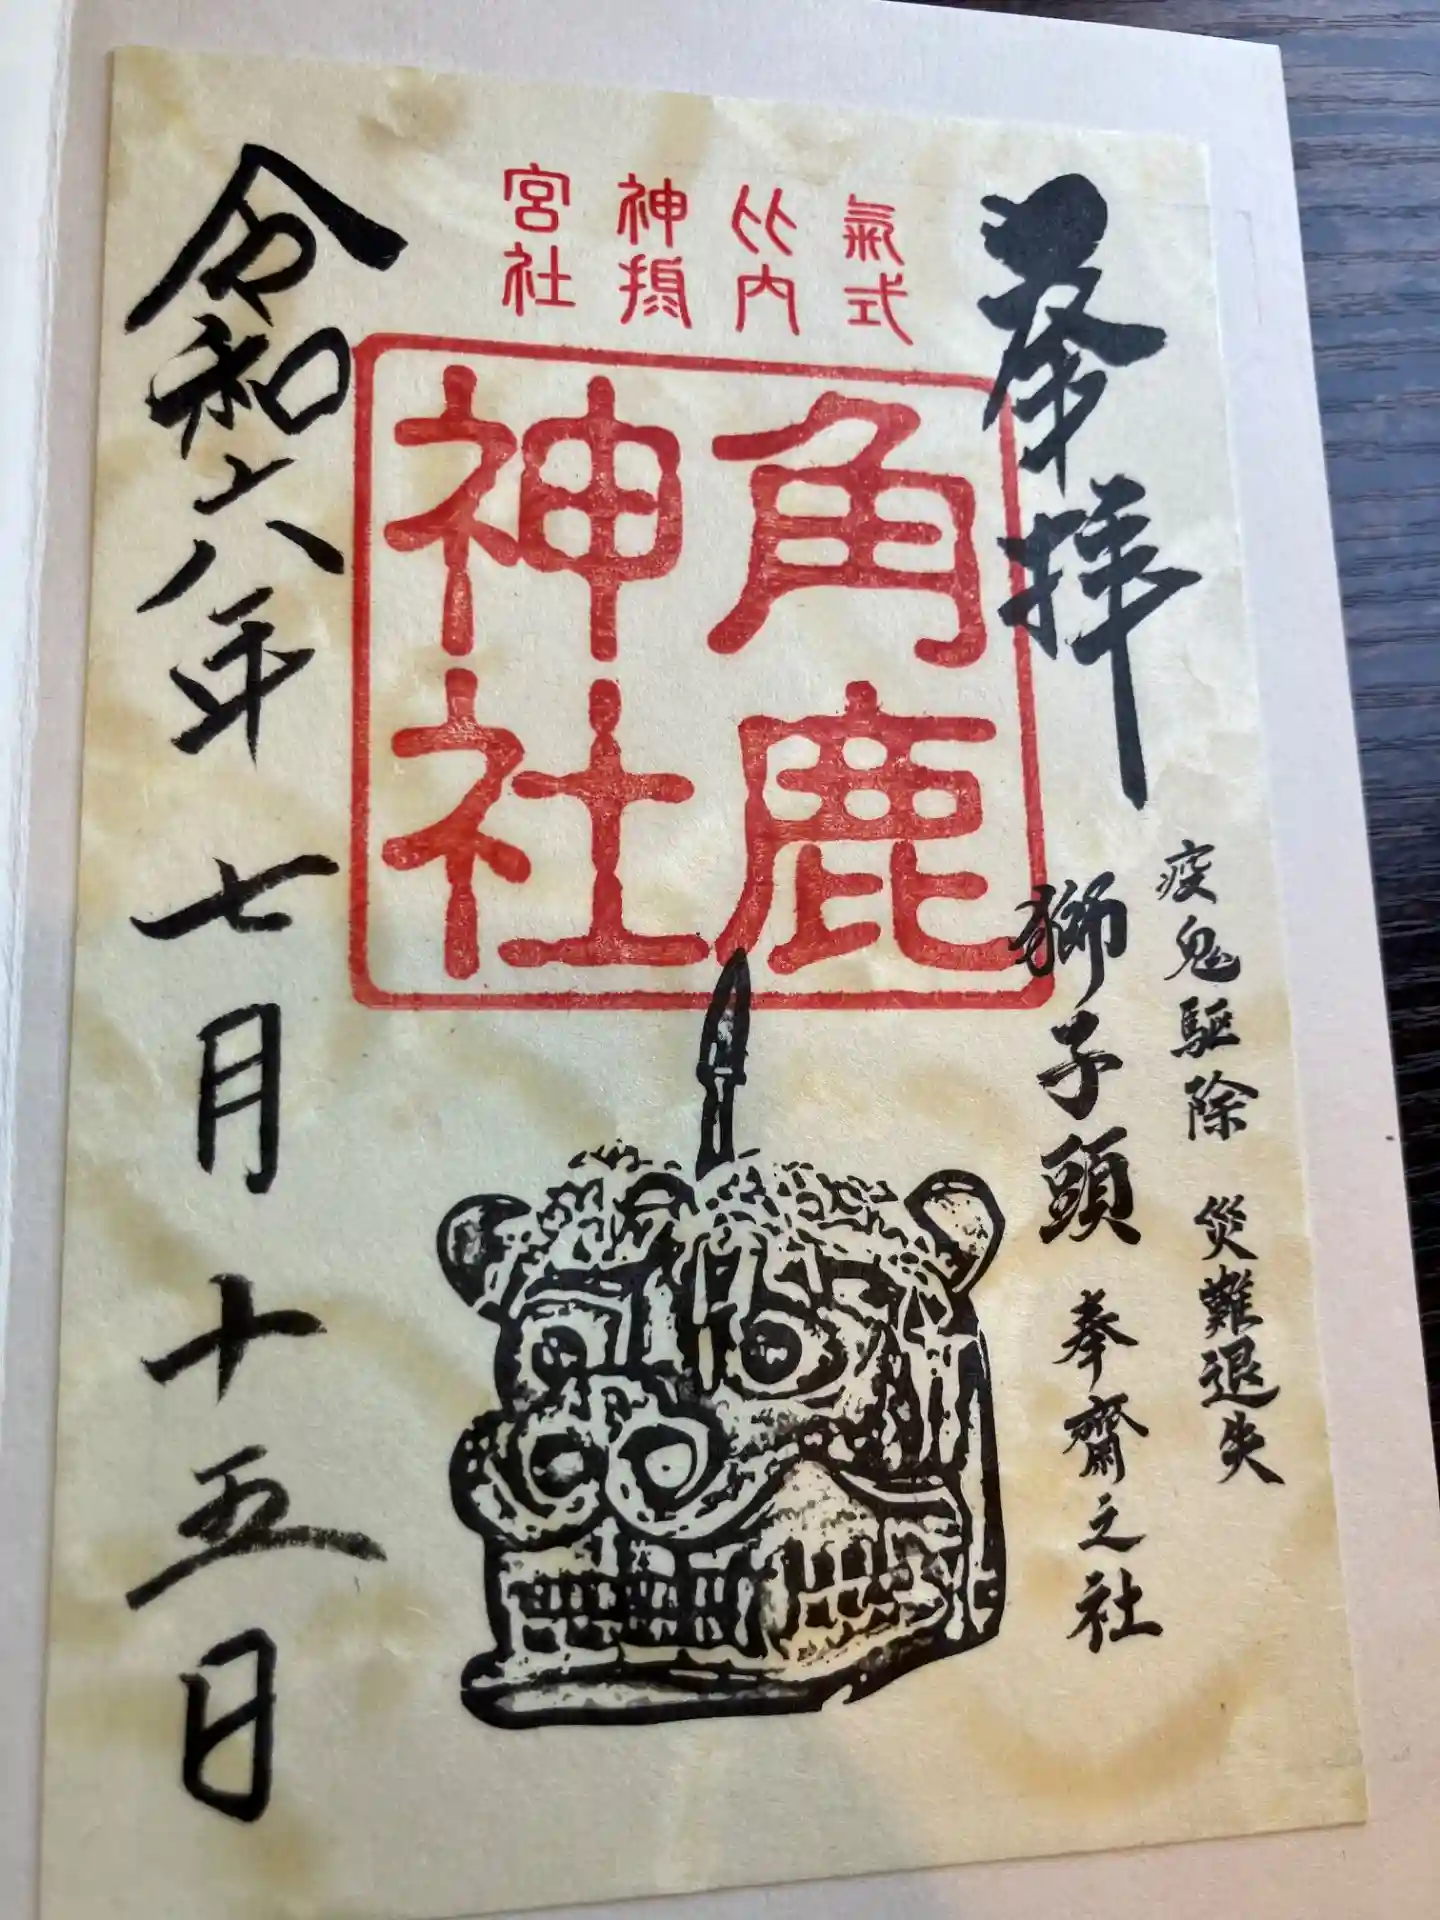 奉拝
疫鬼駆除 災難退失
獅子頭 奉齋之社
氣比神宮
式内摂社
角鹿
神社
令和六年七月十五日